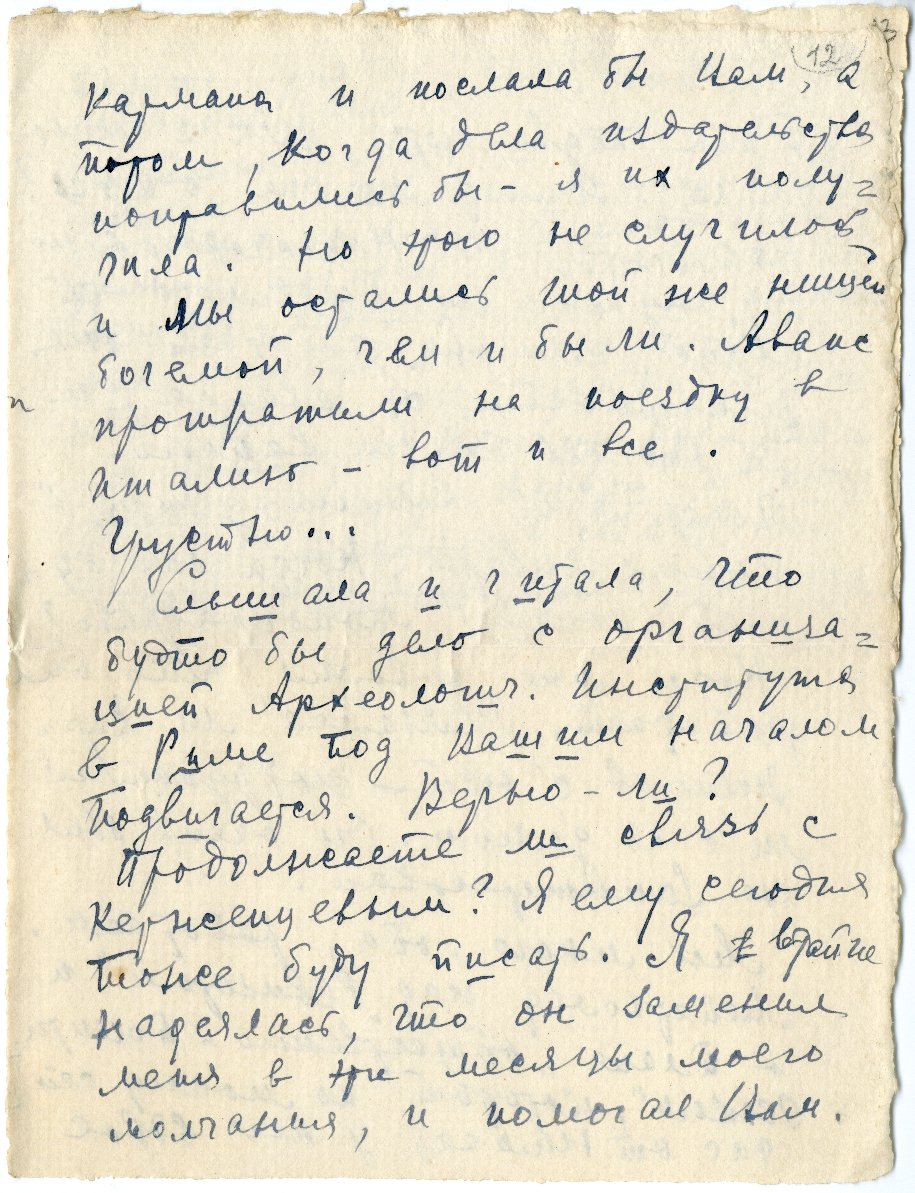 12
кармана и послала бы Вам, а
потом, когда дела издательства
поправились бы – я их полу=
чила. Но этого не случилось
и мы остались той же нищей
богемой, чем и были. Аванс
протратили на поездку в
Италию – вот и все.
Грустно...
Слышала и читала, что
будто бы дело с организа=
цией Археологич. Института
в Риме под Вашим началом
подвигается. Верно-ли?
Продолжаете ли связь с
Керженцевым? Я ему сегодня
тоже буду писать. Я втайне
надеялась, что он заменил
меня в эти месяцы моего
молчания, и помогал Вам.